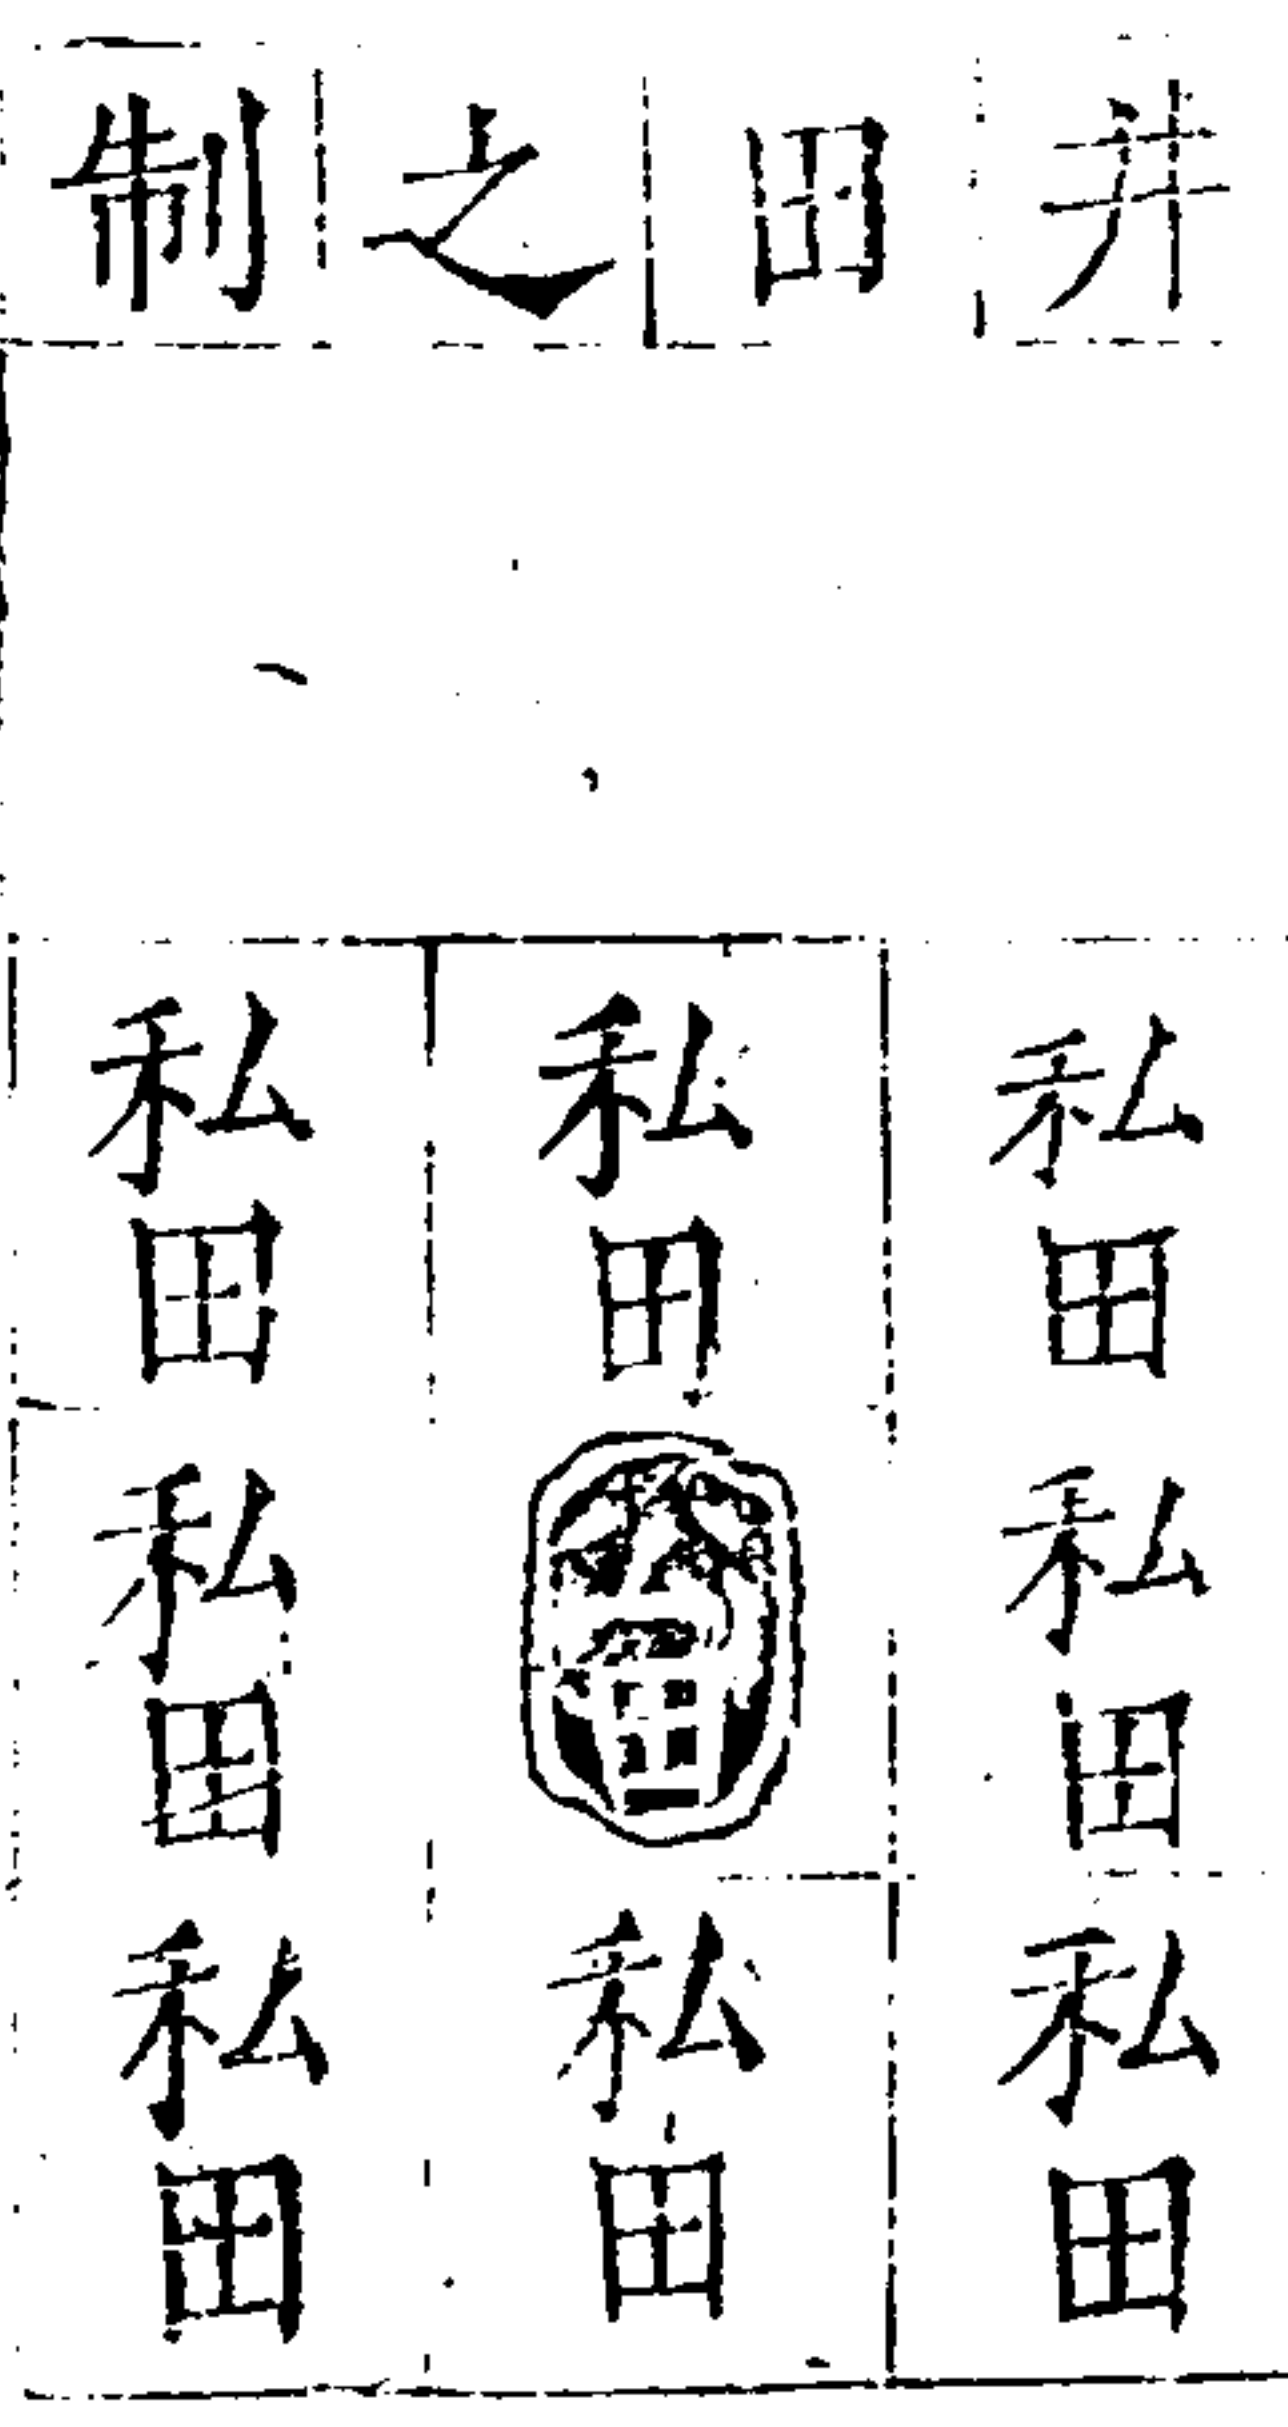 井田之制
私田私田私田
私田公田私田
私田私田私田